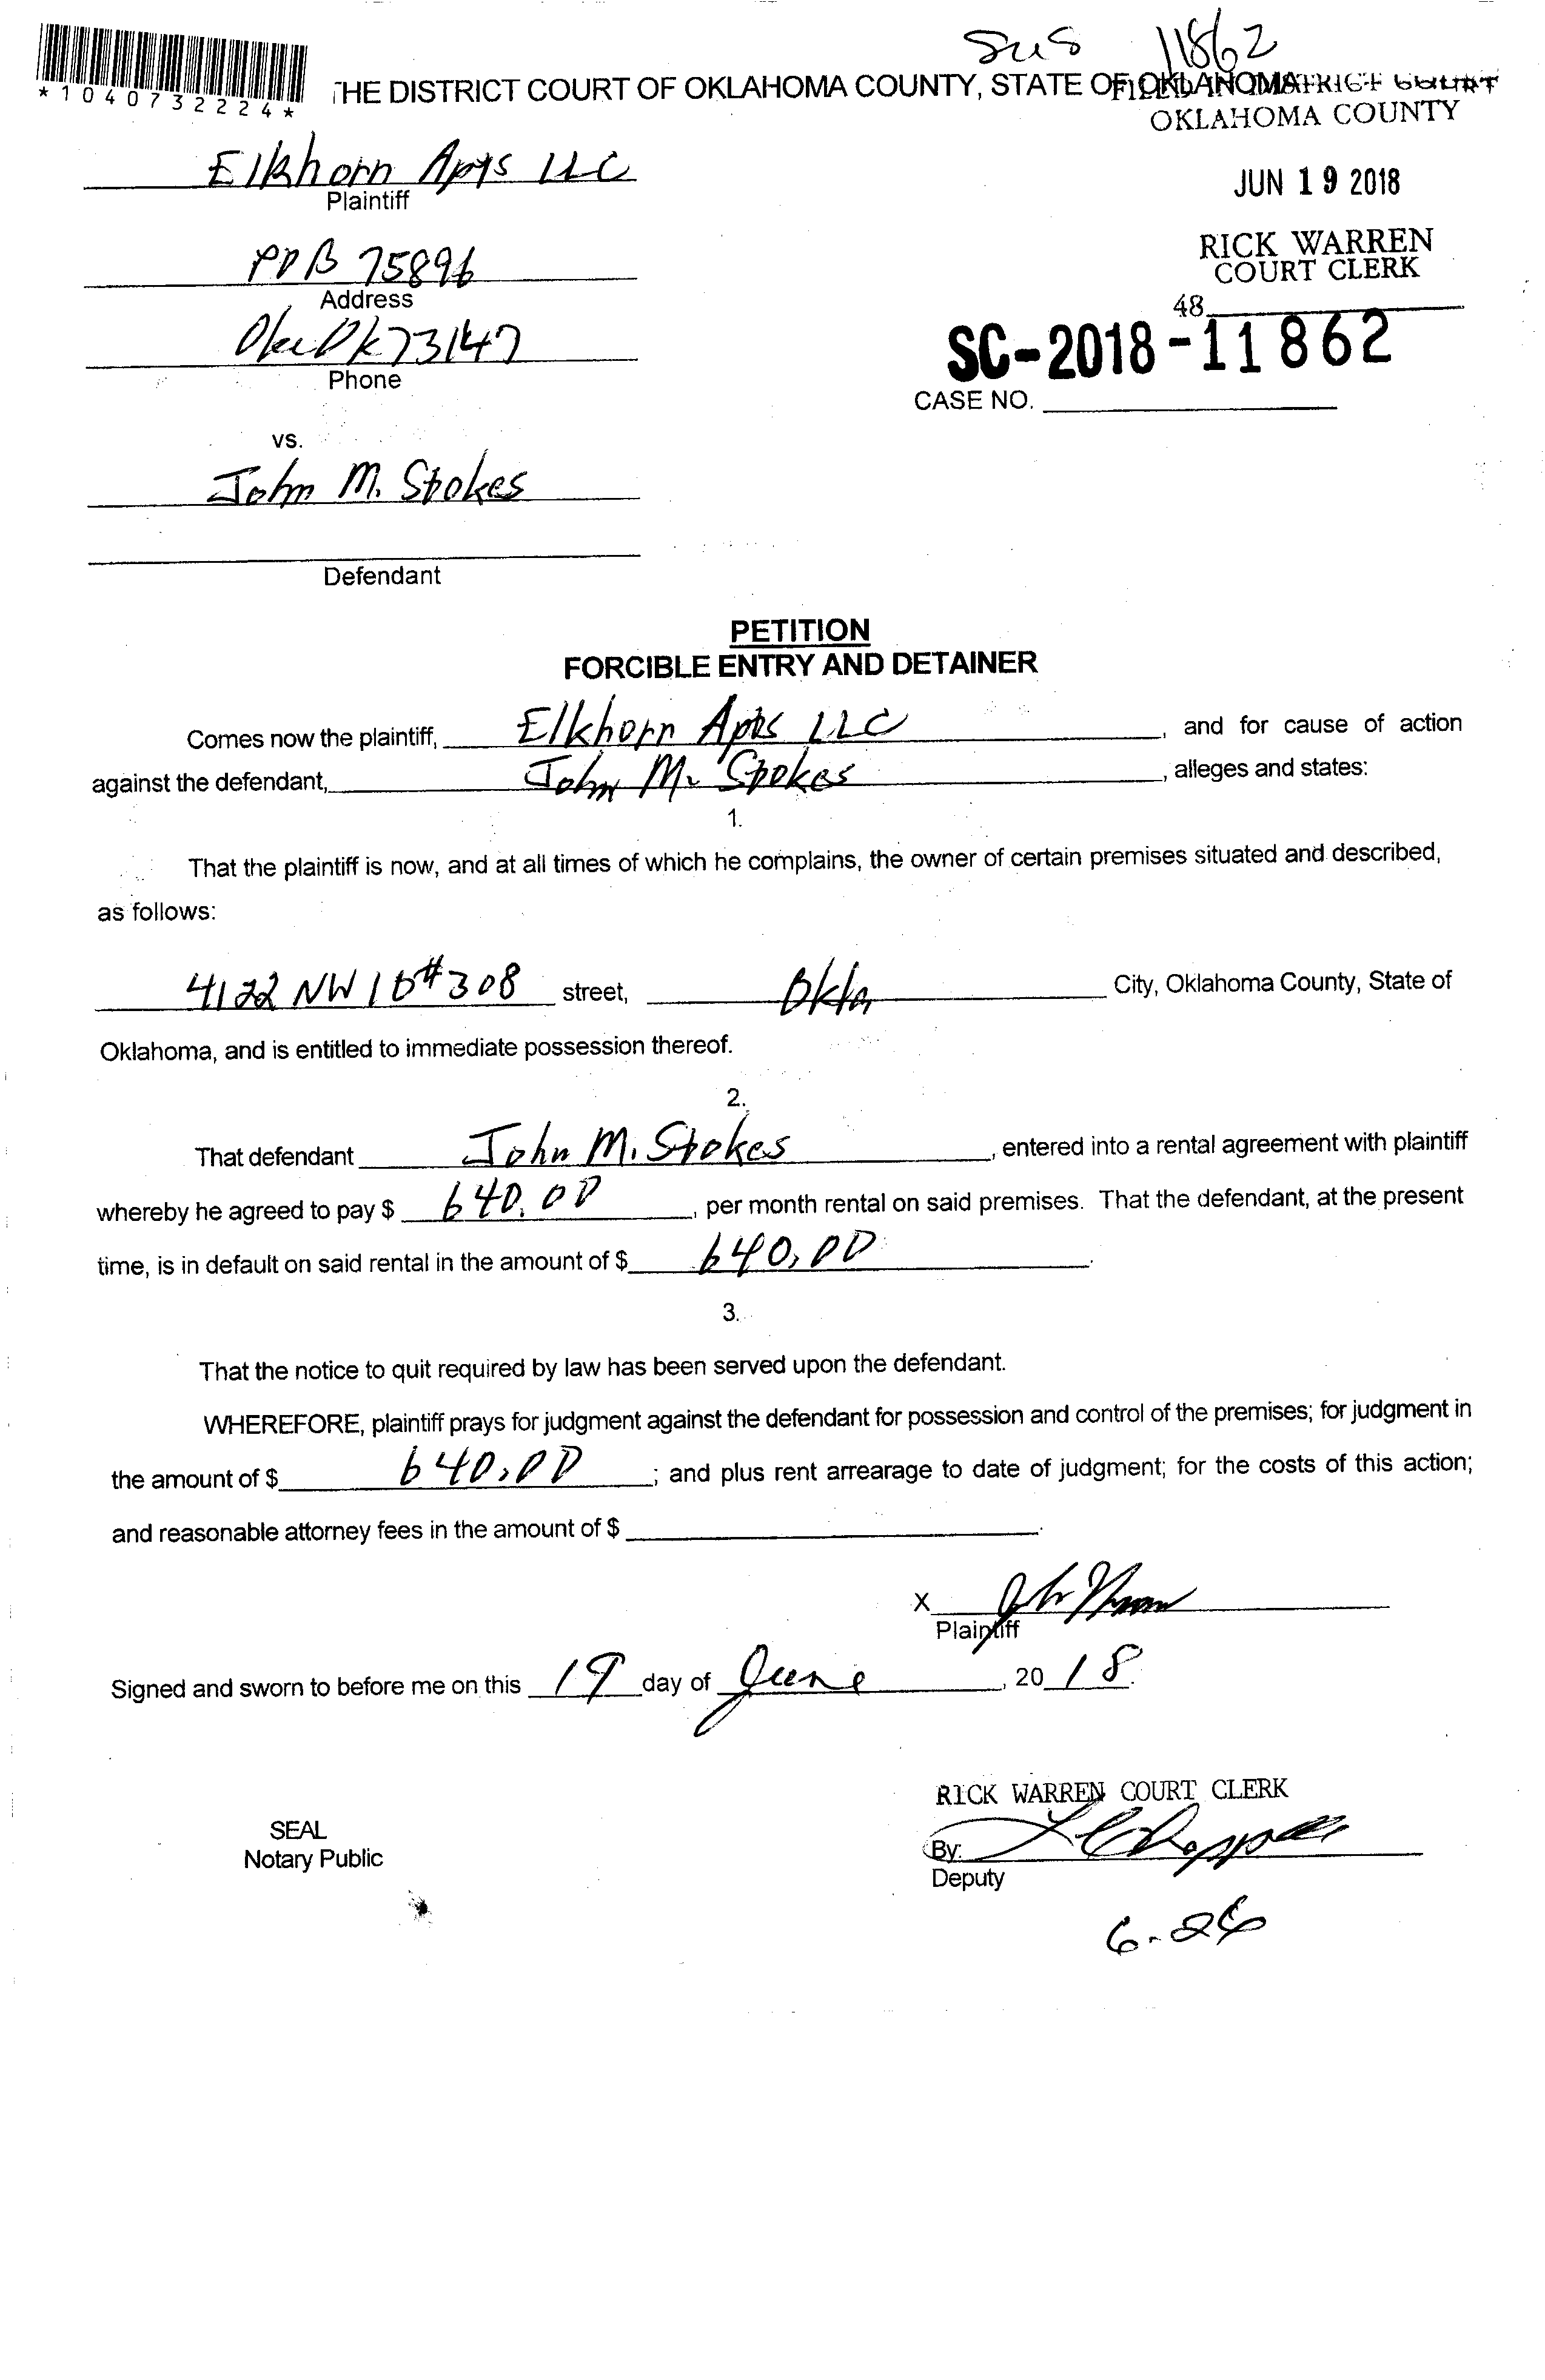 SUS 11862
*1040732224*
THE DISTRICT COURT OF OKLAHOMA COUNTY, STATE OF OKLAHOMA
FILED IN DISTRICT COURT
OKLAHOMA COUNTY
Elkhorn Apts LLC
Plaintiff
JUN 19 2018
RICK WARREN
COURT CLERK
POB 75896
Address
48
Okc Ok 73147
Phone
SC-2018-11862
CASE NO.
vs.
John M. Stokes
Defendant
PETITION
FORCIBLE ENTRY AND DETAINER
Comes now the plaintiff, Elkhorn Apts LLC, and for cause of action
against the defendant, John M. Stokes, alleges and states:
1.
That the plaintiff is now, and at all times of which he complains, the owner of certain premises situated and described,
as follows:
4122 NW 10 #308 street, Okla City, Oklahoma County, State of
Oklahoma, and is entitled to immediate possession thereof.
2.
That defendant John M. Stokes, entered into a rental agreement with plaintiff
whereby he agreed to pay $ 640.00, per month rental on said premises. That the defendant, at the present
time, is in default on said rental in the amount of $ 640.00.
3.
That the notice to quit required by law has been served upon the defendant.
WHEREFORE, plaintiff prays for judgment against the defendant for possession and control of the premises; for judgment in
the amount of $ 640.00; and plus rent arrearage to date of judgment; for the costs of this action;
and reasonable attorney fees in the amount of $
X
Plaintiff
Signed and sworn to before me on this 19 day of June, 2018.
RICK WARREN COURT CLERK
SEAL
Notary Public
By:
Deputy
6-26